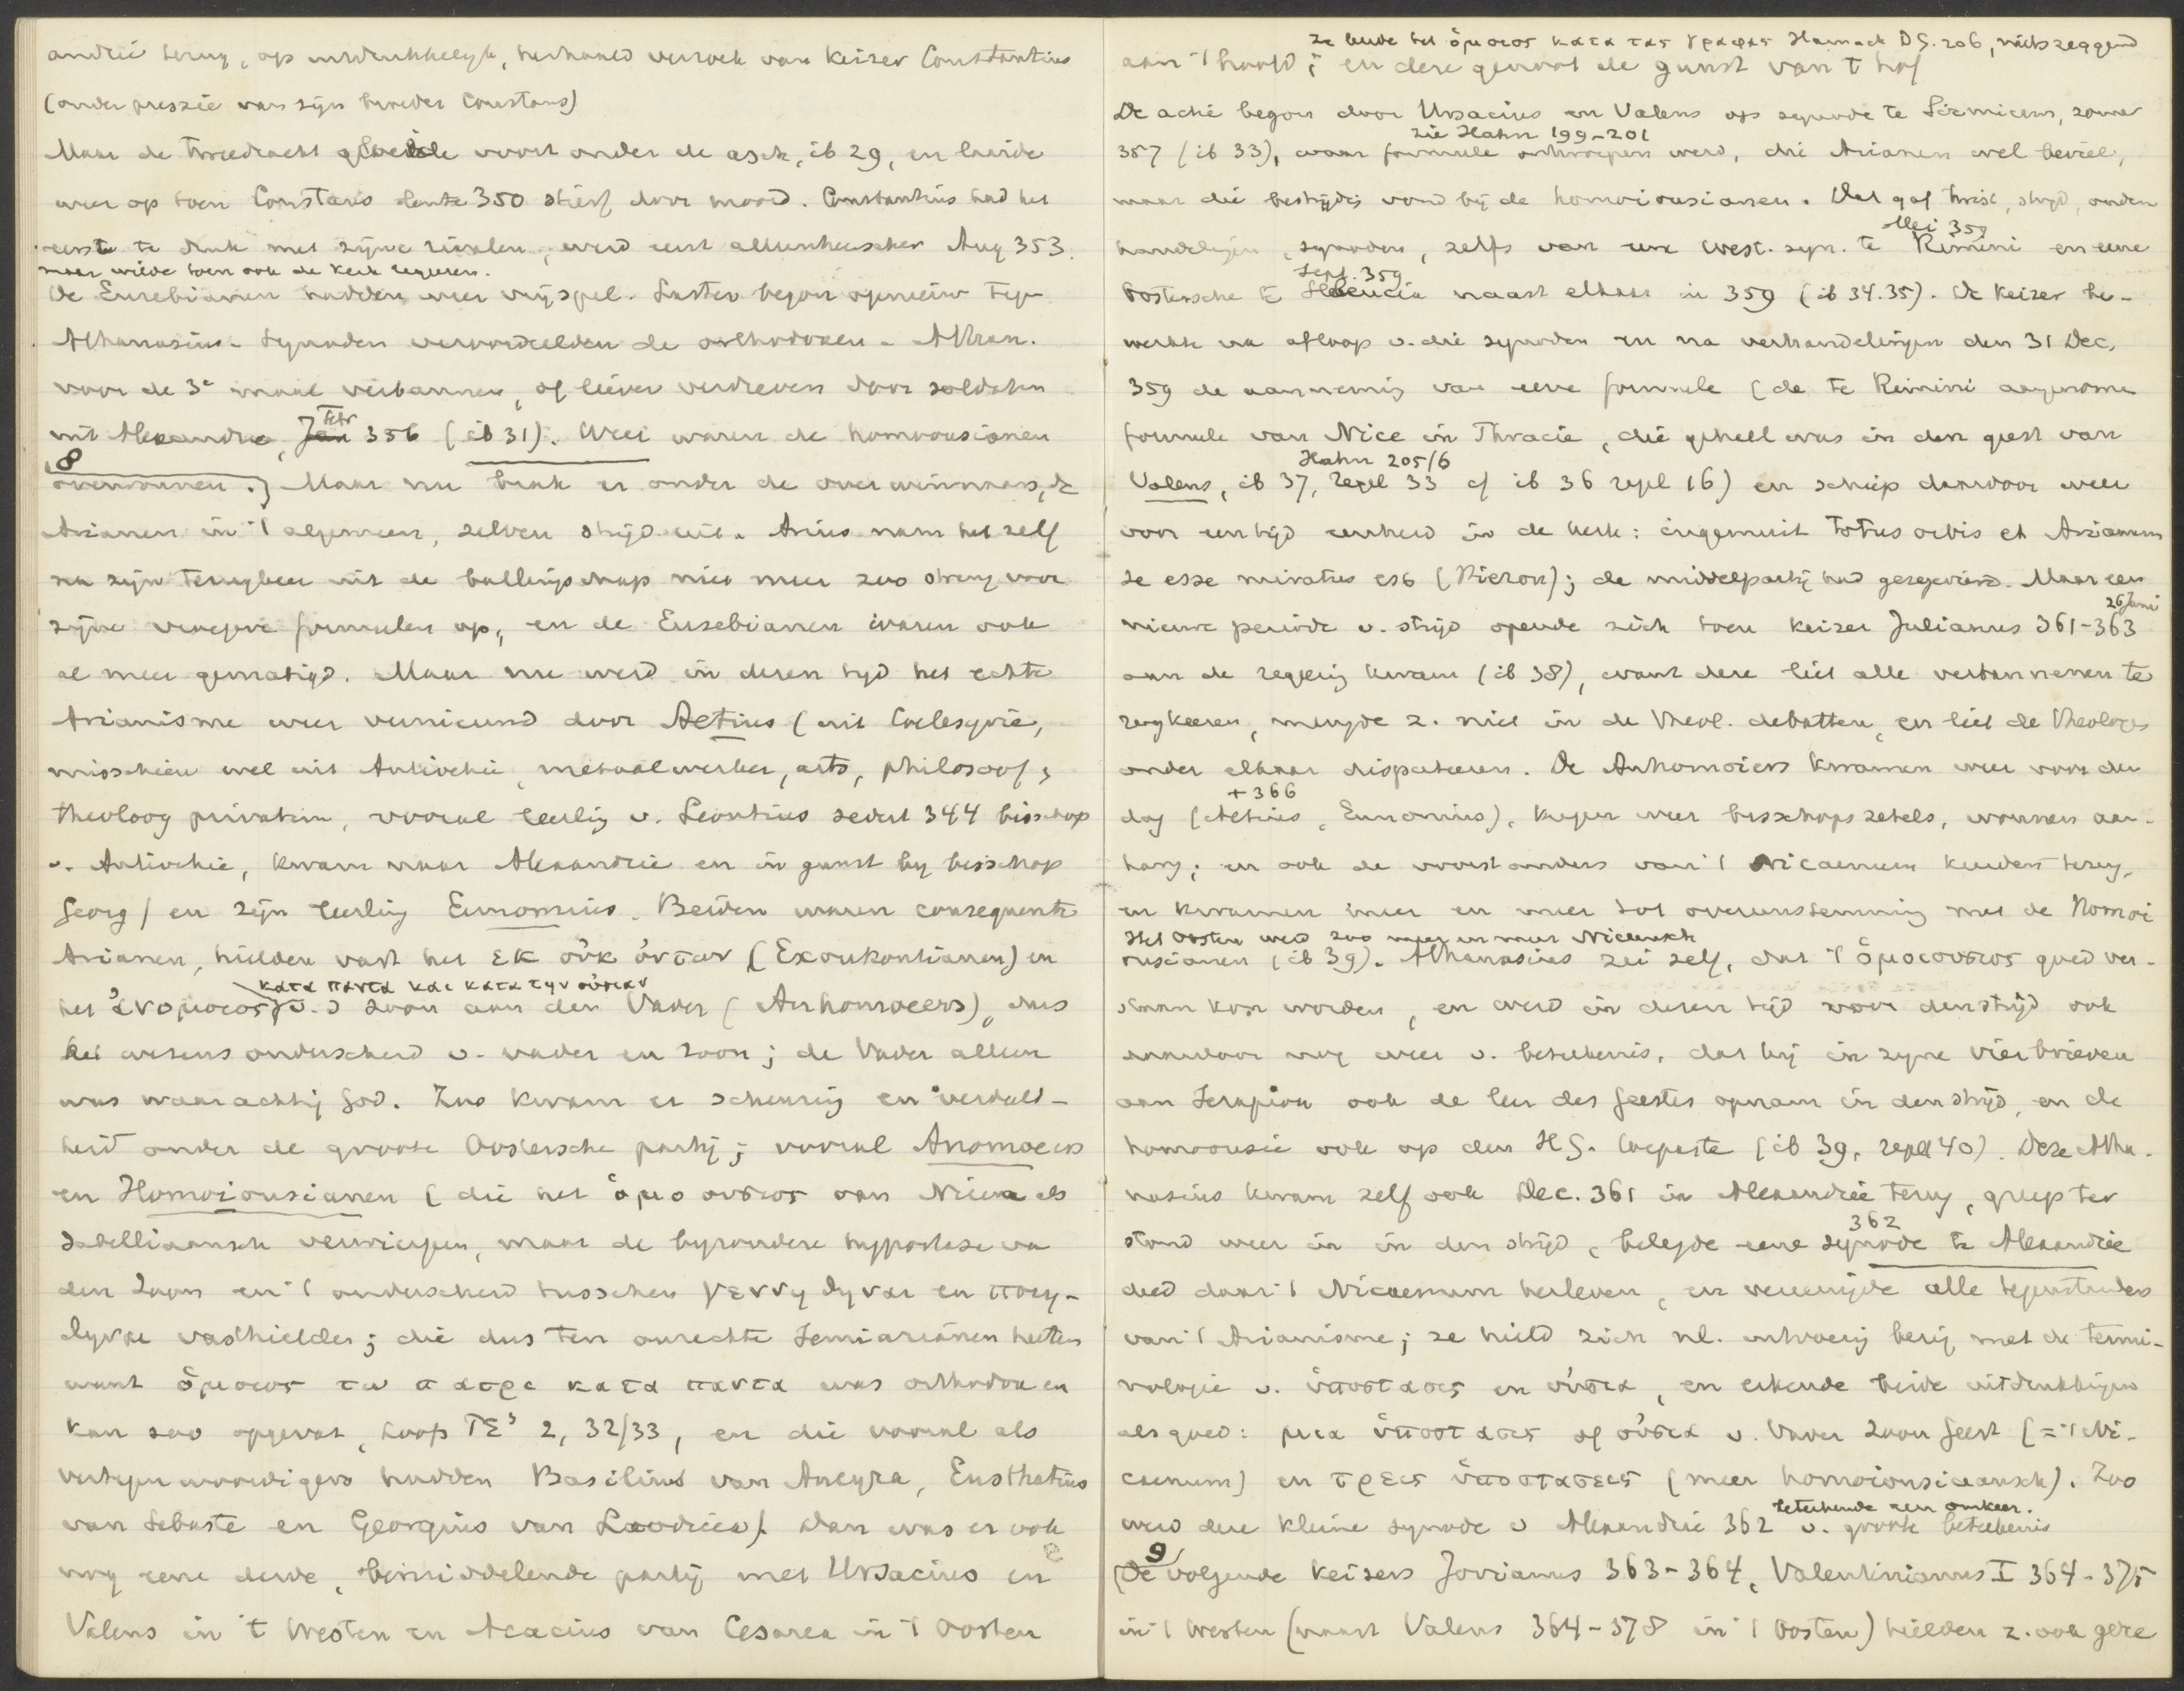 andrië terug, op uitdrukkelijk, herhaald verzoek van Keizer Constantius
(onder pressie van zijn broeder Constans)
Maar de tweedracht gloeide voort onder de asch, ib 29, en laaide
weer op toen Constans lente 350 stierf door moord. Constantius had het
eerst te druk met zijne rivalen, werd eerst alleenheerscher Aug 353.
maar wilde toen ook de kerk regeeren.
De Eusebianen hadden weer vrij spel. Laster begon opnieuw teg.
Athanasius. Synoden veroordeelden de orthodoxen. Athan.
voor de 3e maal verbannen, of liever verdreven door soldaten
uit Alexandrie, Febr 356 (ib 31). Weer waren de homoousianen
8
overwonnen.] Maar nu brak er onder de overwinnaars, de
Arianen in 't algemeen, zelven strijd uit. Arius nam het zelf
na zijn terugkeer uit de ballingschap niet meer zoo streng voor
zijne vroegere formulen op, en de Eusebianen waren ook
al meer gematigd. Maar nu werd in dezen tijd het echte
Arianisme weer vernieuwd door Aetius (uit Coelesyrië,
misschien wel uit Antiochië, metaalwerker, arts, philosoof,
theoloog privatim, vooral leerling v. Leontius sedert 344 bisschop
v. Antiochie, kwam naar Alexandrië en in gunst by bisschop
Georg) en zijn leerling Eunomius. Beiden waren consequente
Arianen, hielden vast het εκ οὐκ ὀντων (Exoukontianen) en
κατα παντα και κατα την οὐσιαν
het ἀνομοιος v.d zoon aan den Vader (Anhomoeers), dus
het wezens onderscheid v. vader en zoon; de Vader alleen
was waarachtig God. Zoo kwam er scheuring en verdeeld-
heid onder de groote Oostersche partij; vooral Anomoeers
en Homoiousianen (die het ὁμοουσιος van Nicea als
Sabelliaansch verwierpen, maar de byzondere hypostase van
den Zoon en 't onderscheid tusschen γεννηθηναι en ποιη-
θηναι vasthielden; die dus ten onrechte Semiarianen heeten
want ὁμοιος τω πατρι κατα παντα was orthodox en
kan zoo opgevat, Loofs TE³ 2, 32/33, en die vooral als
vertegenwoordigers hadden Basilius van Ancyra, Eusthatius
van Sebaste en Georgius van Laodicea). Dan was er ook
nog eene derde, bemiddelende partij met Ursacius en
Valens in 't Westen en Acacius van Cesarea in 't Oosten
ze leerde het ὁμοιος κατα τας γραφας Harnack DG. 206, nietszeggend
aan 't hoofd; en deze genoot de gunst van t hof
De actie begon door Ursacius en Valens op synode te Sirmicum, zomer
zie Hahn 199-201
357 (ib 33), waar formule ontworpen werd, die Arianen wel beviel,
maar die bestrijding vond bij de homoiousianen. Dat gaf twist, strijd, onder
handelingen, synoden, zelfs van een west. syn. te Rimini en eene
Mei 359
Sept. 359
Oostersche te Seleucia naast elkaar in 359 (ib 34.35). De Keizer be-
werkte na afloop v. die synoden en na verhandelingen den 31 Dec.
359 de aanneming van eene formule (de te Rimini aangenomen
formule van Nice in Thracie, die geheel was in den geest van
Hahn 205/6
Valens, ib 37, regel 33 cf ib 36 regel 16) en schiep daardoor weer
voor een tijd eenheid in de kerk: ingemuit totus orbis et Arianum
se esse miratus est (Hieron); de middelpartij had gezegevierd. Maar een
26 Juni
nieuwe periode v. strijd opende zich toen Keizer Julianus 361-363
aan de regeering kwam (ib 38), want deze liet alle verbannenen te
rugkeeren, mengde z. niet in de theol. debatten, en liet de theologen
onder elkaar disputeeren. De Anhomoiers kwamen weer voor den
+ 366
dag (Aetius, Eunomius), kregen weer bisschopszetels, wonnen aan-
hang; en ook de voorstanders van 't Nicaenum keerden terug,
en kwamen meer en meer tot overeenstemming met de Homoi
Het Oosten werd zoo meer en meer Niceensch
ousianen (ib 39). Athanasius zei zelf, dat 't ὁμοιουσιος goed ver-
staan kon worden, en werd in dezen tijd voor den strijd ook
daardoor nog weer v. beteekenis, dat hij in zyne vier brieven
aan Serapion ook de leer des Geestes opnam in den strijd, en de
homoousie ook op den HG. toepaste (ib 39, regel 40). Deze Atha-
nasius kwam zelf ook Dec. 361 in Alexandrië terug, greep ter
362
stond weer in in den strijd, belegde eene synode te Alexandrië
deed daar 't Nicaenum herleven, en vereenigde alle tegenstanders
van 't Arianisme; ze hield zich nl. uitvoerig bezig met de termi-
nologie v. ὑποστασις en οὐσια, en erkende beide uitdrukkingen
als goed: μια ὑποστασις of οὐσια v. Vader Zoon Geest (= 't Ni-
caenum) en τρεις ὑποστασεις (meer homoiousiaansch). Zoo
beteekende een omkeer.
werd deze kleine synode v Alexandrië 362 v. groote beteekenis
9
(De volgende Keizers Jovianus 363-364, Valentinianus I 364-375
in 't Westen (naast Valens 364-378 in 't Oosten) hielden z. ook gere